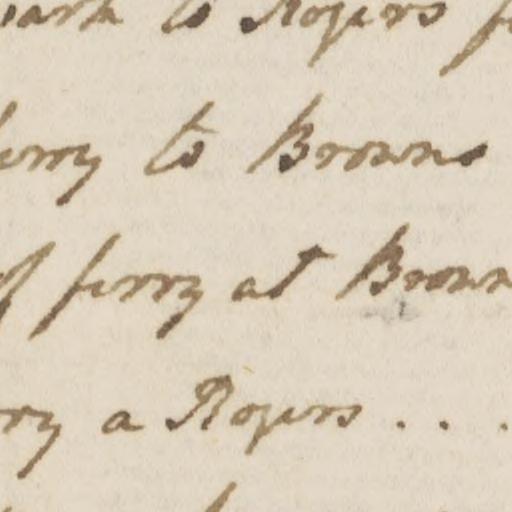 to Rogers
ferry to Browns
of ferry at Brown
ry a Rogers . . .